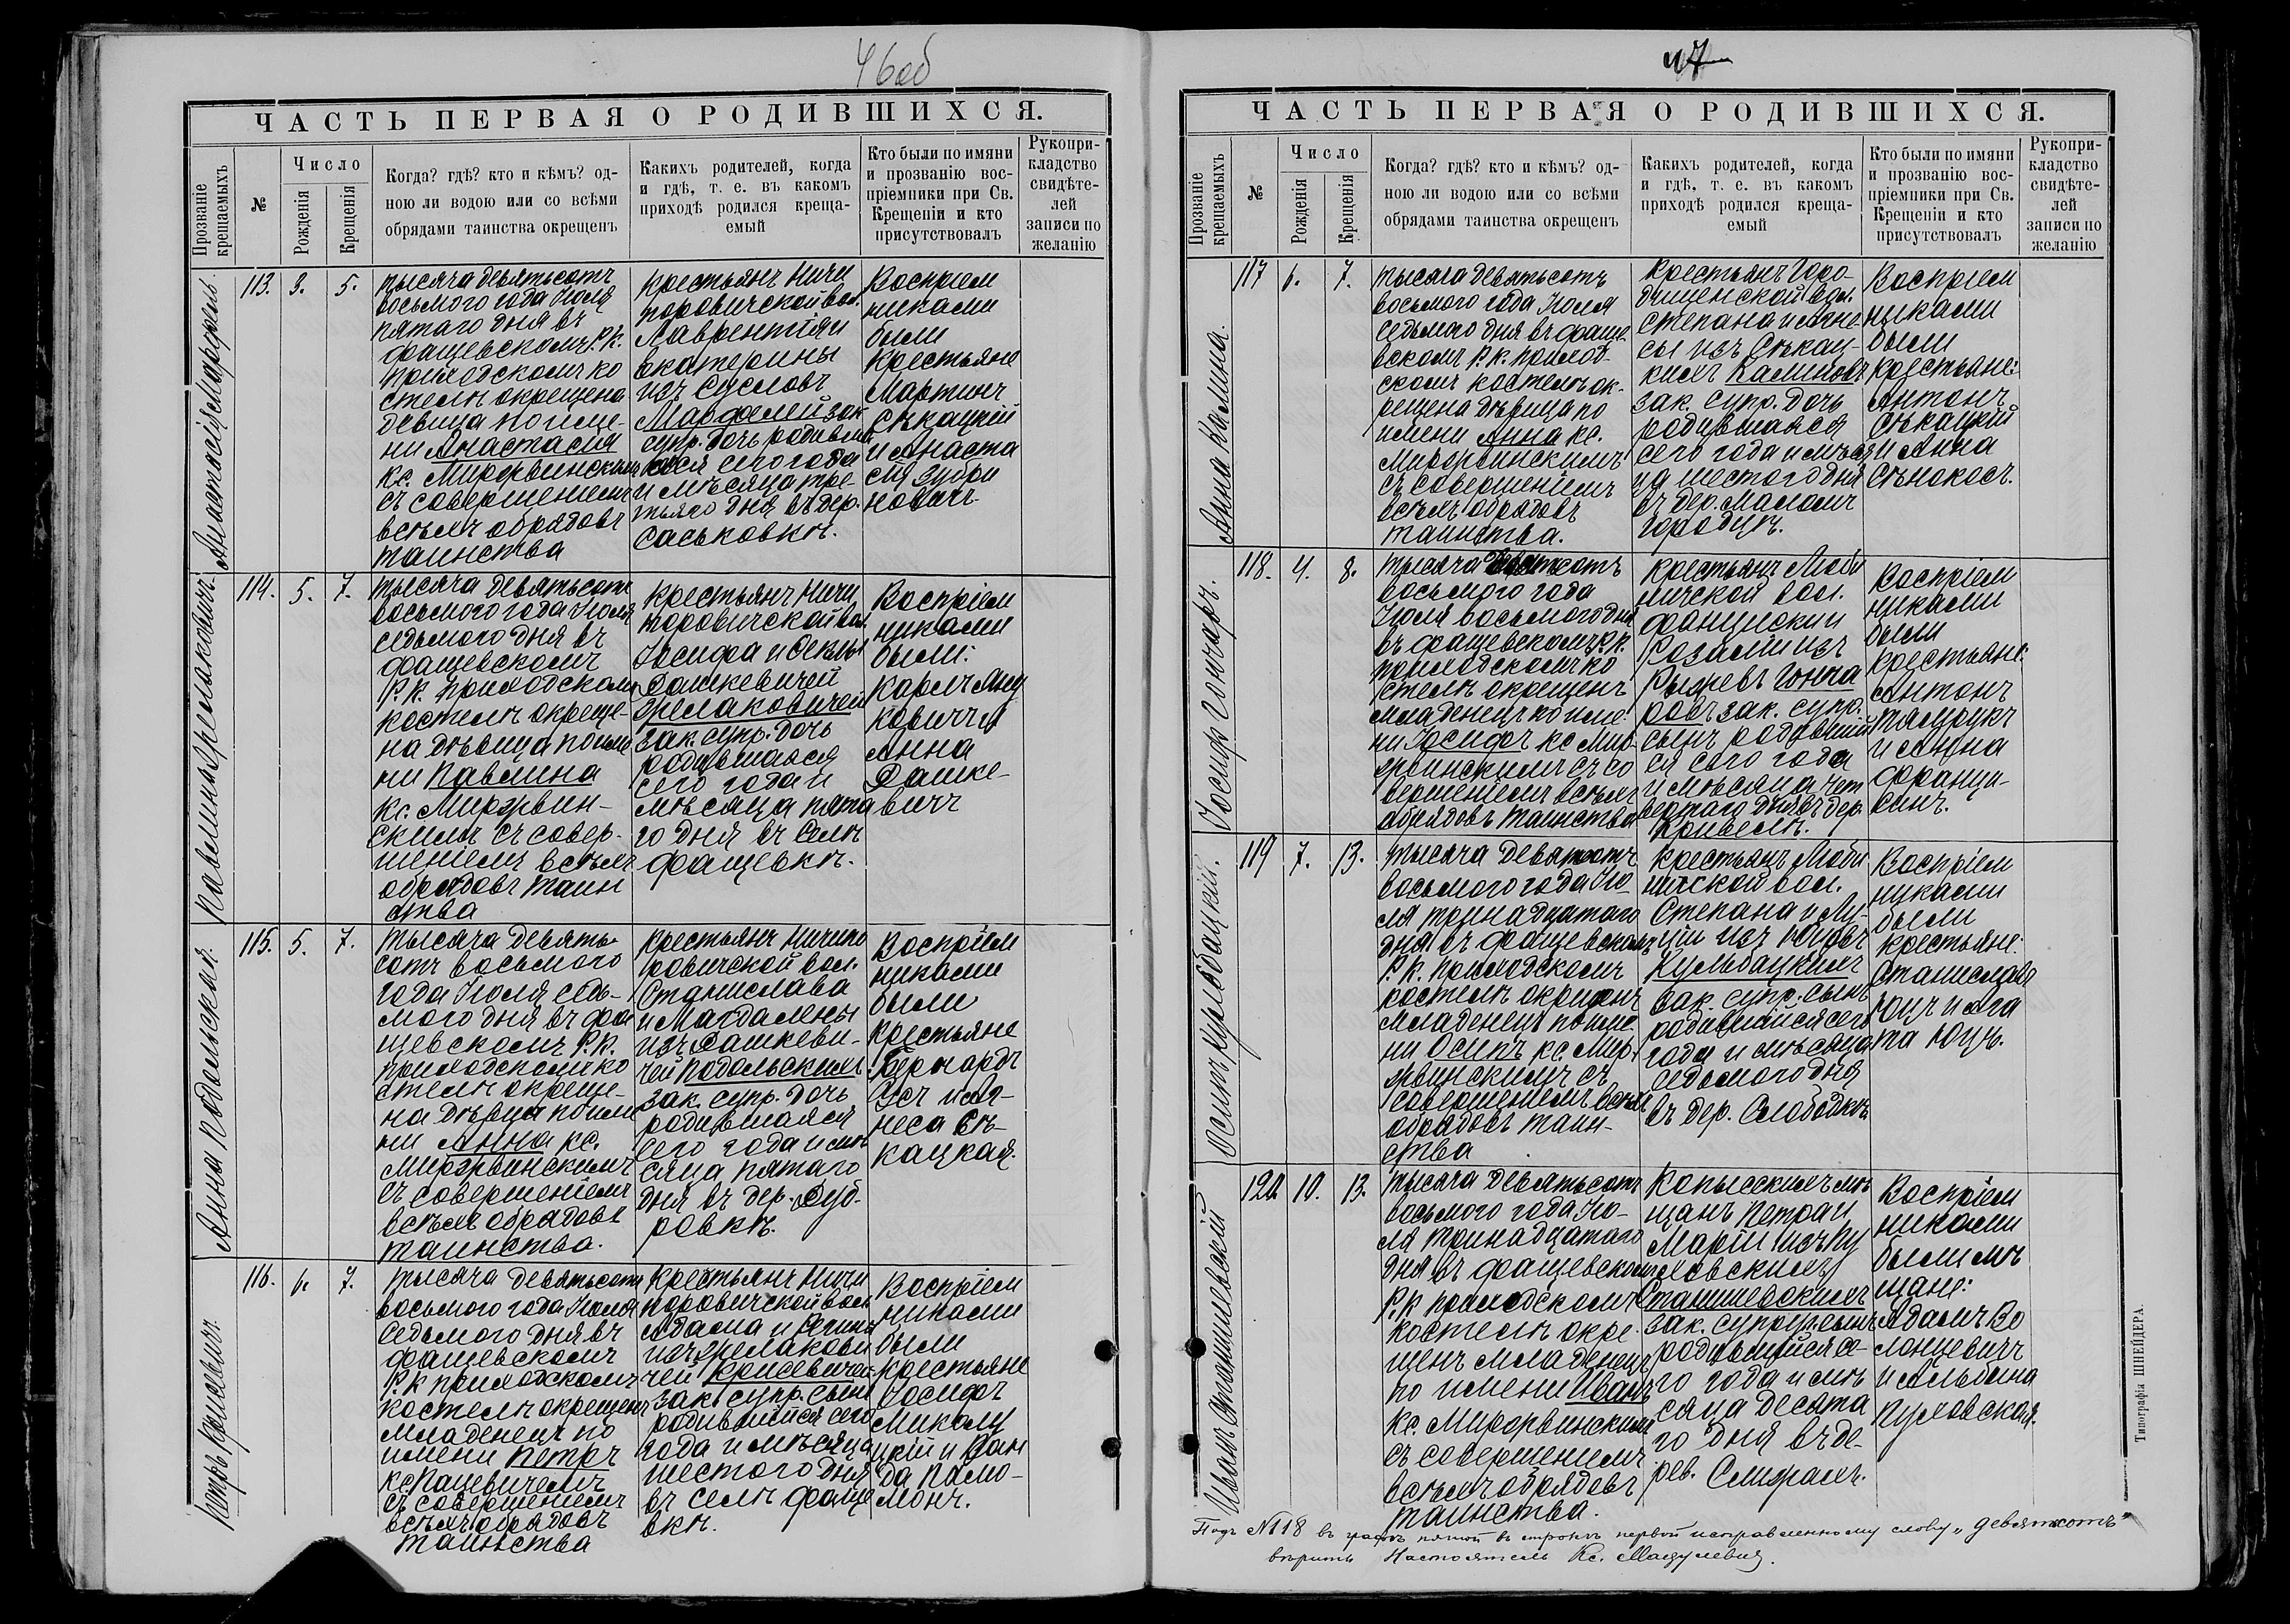 46об
ЧАСТЬ ПЕРВАЯ О РОДИВШИХСЯ.
Прозваніе крещаемыхъ
№
Число
Рожденія
Крещенія
Когда? гдѣ? кто и кѣмъ? од-
ною ли водою или со всѣми
обрядами таинства окрещенъ
Какихъ родителей, когда
и гдѣ, т. е. въ какомъ
приходѣ родился креща-
емый
Кто были по имяни
и прозванію вос-
пріемники при Св.
Крещеніи и кто
присутствовалъ
Рукопри-
кладство
свидѣте-
лей
записи по
желанію
113. 3. 5.
тысяча девятьсотъ
восьмого года Іюля
пятаго дня въ
Фащевскомъ Р. К.
приходскомъ ко
стелѣ окрещена
девица по име-
ни Анастасія
кс. Мирорвинскимъ
съ совершеніемъ
всѣхъ обрядовъ
таинства
крестьянъ Ничи
поровичской вол.
Лаврентія и
Екатерины
изъ Сусловъ
Марфелей зак.
супр. дочь родивша
яся сего года
и мѣсяца тре
тьяго дня въ дер.
Саськовкѣ.
Воспріем
никами
были
крестьяне
Мартинъ
Сѣкацкій
и Анаста
сія Зубри
новичъ
114. 5. 7.
тысяча девятьсотъ
восьмого года Іюля
седьмого дня въ
Фащевскомъ
Р. К. приходскомъ
костелѣ окреще-
на дѣвица по име
ни Павлина
кс. Мирорвин-
скимъ съ совер-
шеніемъ всѣхъ
обрядовъ таин
ства
крестьянъ Ничи
поровичской вол.
Іосифа и Ѳеклы
Дашкевичей
зак. супр. дочь
родившаяся
сего года и
мѣсяца пята
го дня въ селѣ
Фащевкѣ.
Воспріем
никами
были:
Карлъ Яцу
ковичъ и
Анна
Дашке-
вичъ
Анна Подольская.
115. 5. 7.
тысяча девять-
сотъ восьмого
года Іюля седь-
мого дня въ Фа
щевскомъ Р. К.
приходскомъ ко
стелѣ окреще-
на дѣвица по име
ни Анна кс.
Мирорвинскимъ
съ совершеніемъ
всѣхъ обрядовъ
таинства.
крестьянъ Ничипо
ровичской вол.
Станислава
и Магдалены
изъ Дашкеви-
чей Подольскихъ
зак. супр. дочь
родившаяся
сего года и мѣ
сяца пятаго
дня въ дер. Дуб-
ровкѣ.
Воспріем
никами
были
крестьяне
Бернардъ
и Аг-
неса Сѣ-
кацкая.
116. 6. 7.
тысяча девятьсотъ
восьмого года Іюля
седьмого дня въ
Фащевскомъ
Р. К. приходскомъ
костелѣ окрещенъ
младенецъ по
имени Петръ
кс. Пацевичемъ
съ совершеніемъ
всѣхъ обрядовъ
таинства
крестьянъ Ничи
поровичской вол.
Адама и
чей Крисевичей
зак. супр. сынъ
родившійся сего
года и мѣсяца
шестого дня
въ селѣ Фаще
вкѣ.
Воспріем
никами
были
крестьяне
Іосифъ
Миколу
цкій и Ван
да Памо-
монъ.
47
ЧАСТЬ ПЕРВАЯ О РОДИВШИХСЯ.
Прозваніе крещаемыхъ
№
Число
Рожденія
Крещенія
Когда? гдѣ? кто и кѣмъ? од-
ною ли водою или со всѣми
обрядами таинства окрещенъ
Какихъ родителей, когда
и гдѣ, т. е. въ какомъ
приходѣ родился креща-
емый
Кто были по имяни
и прозванію вос-
пріемники при Св.
Крещеніи и кто
присутствовалъ
Рукопри-
кладство
свидѣте-
лей
записи по
желанію
Анна Калина.
117 6. 7.
тысяча девятьсотъ
восьмого года Іюля
седьмого дня въ Фаще-
вскомъ Р. К. приход-
скомъ костелѣ ок-
рещена дѣвица по
имени Анна кс.
Мирорвинскимъ
съ совершеніемъ
всѣхъ обрядовъ
таинства.
Крестьянъ Горо-
дищенской вол.
Степана и Агне-
сы изъ Сѣкац-
кихъ Калиновъ
зак. супр. дочь
родившаяся
сего года и мѣся
ца шестого дня
въ дер. Маломъ
Городцѣ.
Воспріем
никами
были
крестьяне:
Антонъ
Сѣкацкій
и Анна
Сѣнокосъ.
Іосифъ Гончаръ.
118. 4. 8.
тысяча девятьсотъ
восьмого года
Іюля восьмого дня
въ Фащевскомъ Р. К.
приходскомъ ко
стелѣ окрещенъ
младенецъ по име-
ни Іосифъ кс. Мир-
орвинскимъ съ со
вершеніемъ всѣхъ
обрядовъ таинства
крестьянъ
ничской вол.
Францишки
Розаліи изъ
Рыжевъ Гонча
ровъ зак. супр.
сынъ родившій
ся сего года
и мѣсяца чет
вертаго дня въ дер.
Воспріем
никами
были
крестьяне:
Антонъ
и Анна
Франци-
Осипъ Кульбацкій.
119 7. 13.
тысяча девятьсотъ
восьмого года Ію-
ля тринадцатаго
дня въ Фащевскомъ
Р. К. приходскомъ
костелѣ окрещенъ
младенецъ по име-
ни Осипъ кс. Мир-
орвинскимъ съ
совершеніемъ всѣхъ
обрядовъ таин-
ства
крестьянъ
ничской вол.
Степана и Лу-
ціи изъ Юцовъ
Кульбацкихъ
зак. супр. сынъ
родившійся сего
года и мѣсяца
седьмого дня
въ дер. Слободкѣ
Воспріем
никами
были
крестьяне:
Станиславъ
Юцъ и Ага
та Юцъ.
Иванъ Станишевскій
120 10. 13.
тысяча девятьсотъ
восьмого года Ію-
ля тринадцатаго
дня въ Фащевскомъ
Р. К. приходскомъ
костелѣ окре-
щенъ младенецъ
по имени Иванъ
кс. Мирорвинскимъ
съ совершеніемъ
всѣхъ обрядовъ
таинства.
Копысскихъ мѣ
щанъ Петра и
Маріи изъ Пу
ховскихъ
Станишевскихъ
зак. супруг. сынъ
родившійся се-
го года и мѣ
сяца десята
го дня въ де-
рев.
Воспріем
никами
были мѣ
щане:
Адамъ Во
лонцевичъ
и Альбина
Пуховская.
Подъ №118 въ графѣ пятой въ строкѣ первой исправленному слову „девятьсотъ"
вѣрить Настоятель Кс. Мацулевичъ.
Типографія ШНЕЙДЕРА.